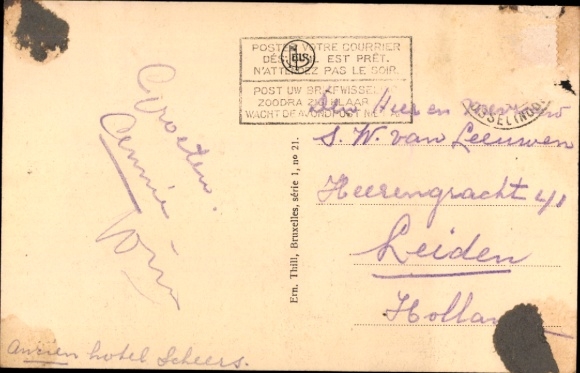 POSTEZ VOTRE COURRIER
DÈS QU'IL EST PRÊT.
N'ATTENDEZ PAS LE SOIR.
POST UW BRIEFWISSELING
ZOODRA ZIJ KLAAR IS
WACHT DE AVONDPOST NIET AF
NELS
Groeten.
Annie
Wim
Den Heer en Mevrouw
S. W. van Leeuwen
Heerengracht 41
Leiden
Holland
Ern. Thill, Bruxelles, série 1, no 21.
ancien hotel Scheers.